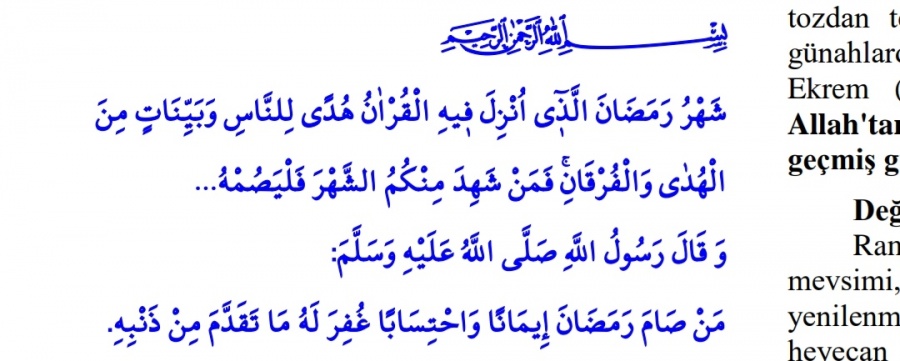 بِسْمِ اللهِ الرَّحْمٰنِ الرَّحِيمِ
شَهْرُ رَمَضَانَ الَّذ۪ٓى اُنْزِلَ ف۪يهِ الْقُرْاٰنُ هُدًى لِلنَّاسِ وَبَيِّنَاتٍ مِنَ
الْهُدٰى وَالْفُرْقَانِۚ فَمَنْ شَهِدَ مِنْكُمُ الشَّهْرَ فَلْيَصُمْهُ...
وَ قَالَ رَسُولُ اللَّهِ صَلَّى اللَّهُ عَلَيْهِ وَسَلَّمَ:
مَنْ صَامَ رَمَضَانَ إِيمَانًا وَاحْتِسَابًا غُفِرَ لَهُ مَا تَقَدَّمَ مِنْ ذَنْبِهِ.
tozdan
günahlar
Ekrem (
Allah'ta
geçmiş g
Değ
Ran
mevsimi,
yenilenm
heyecan